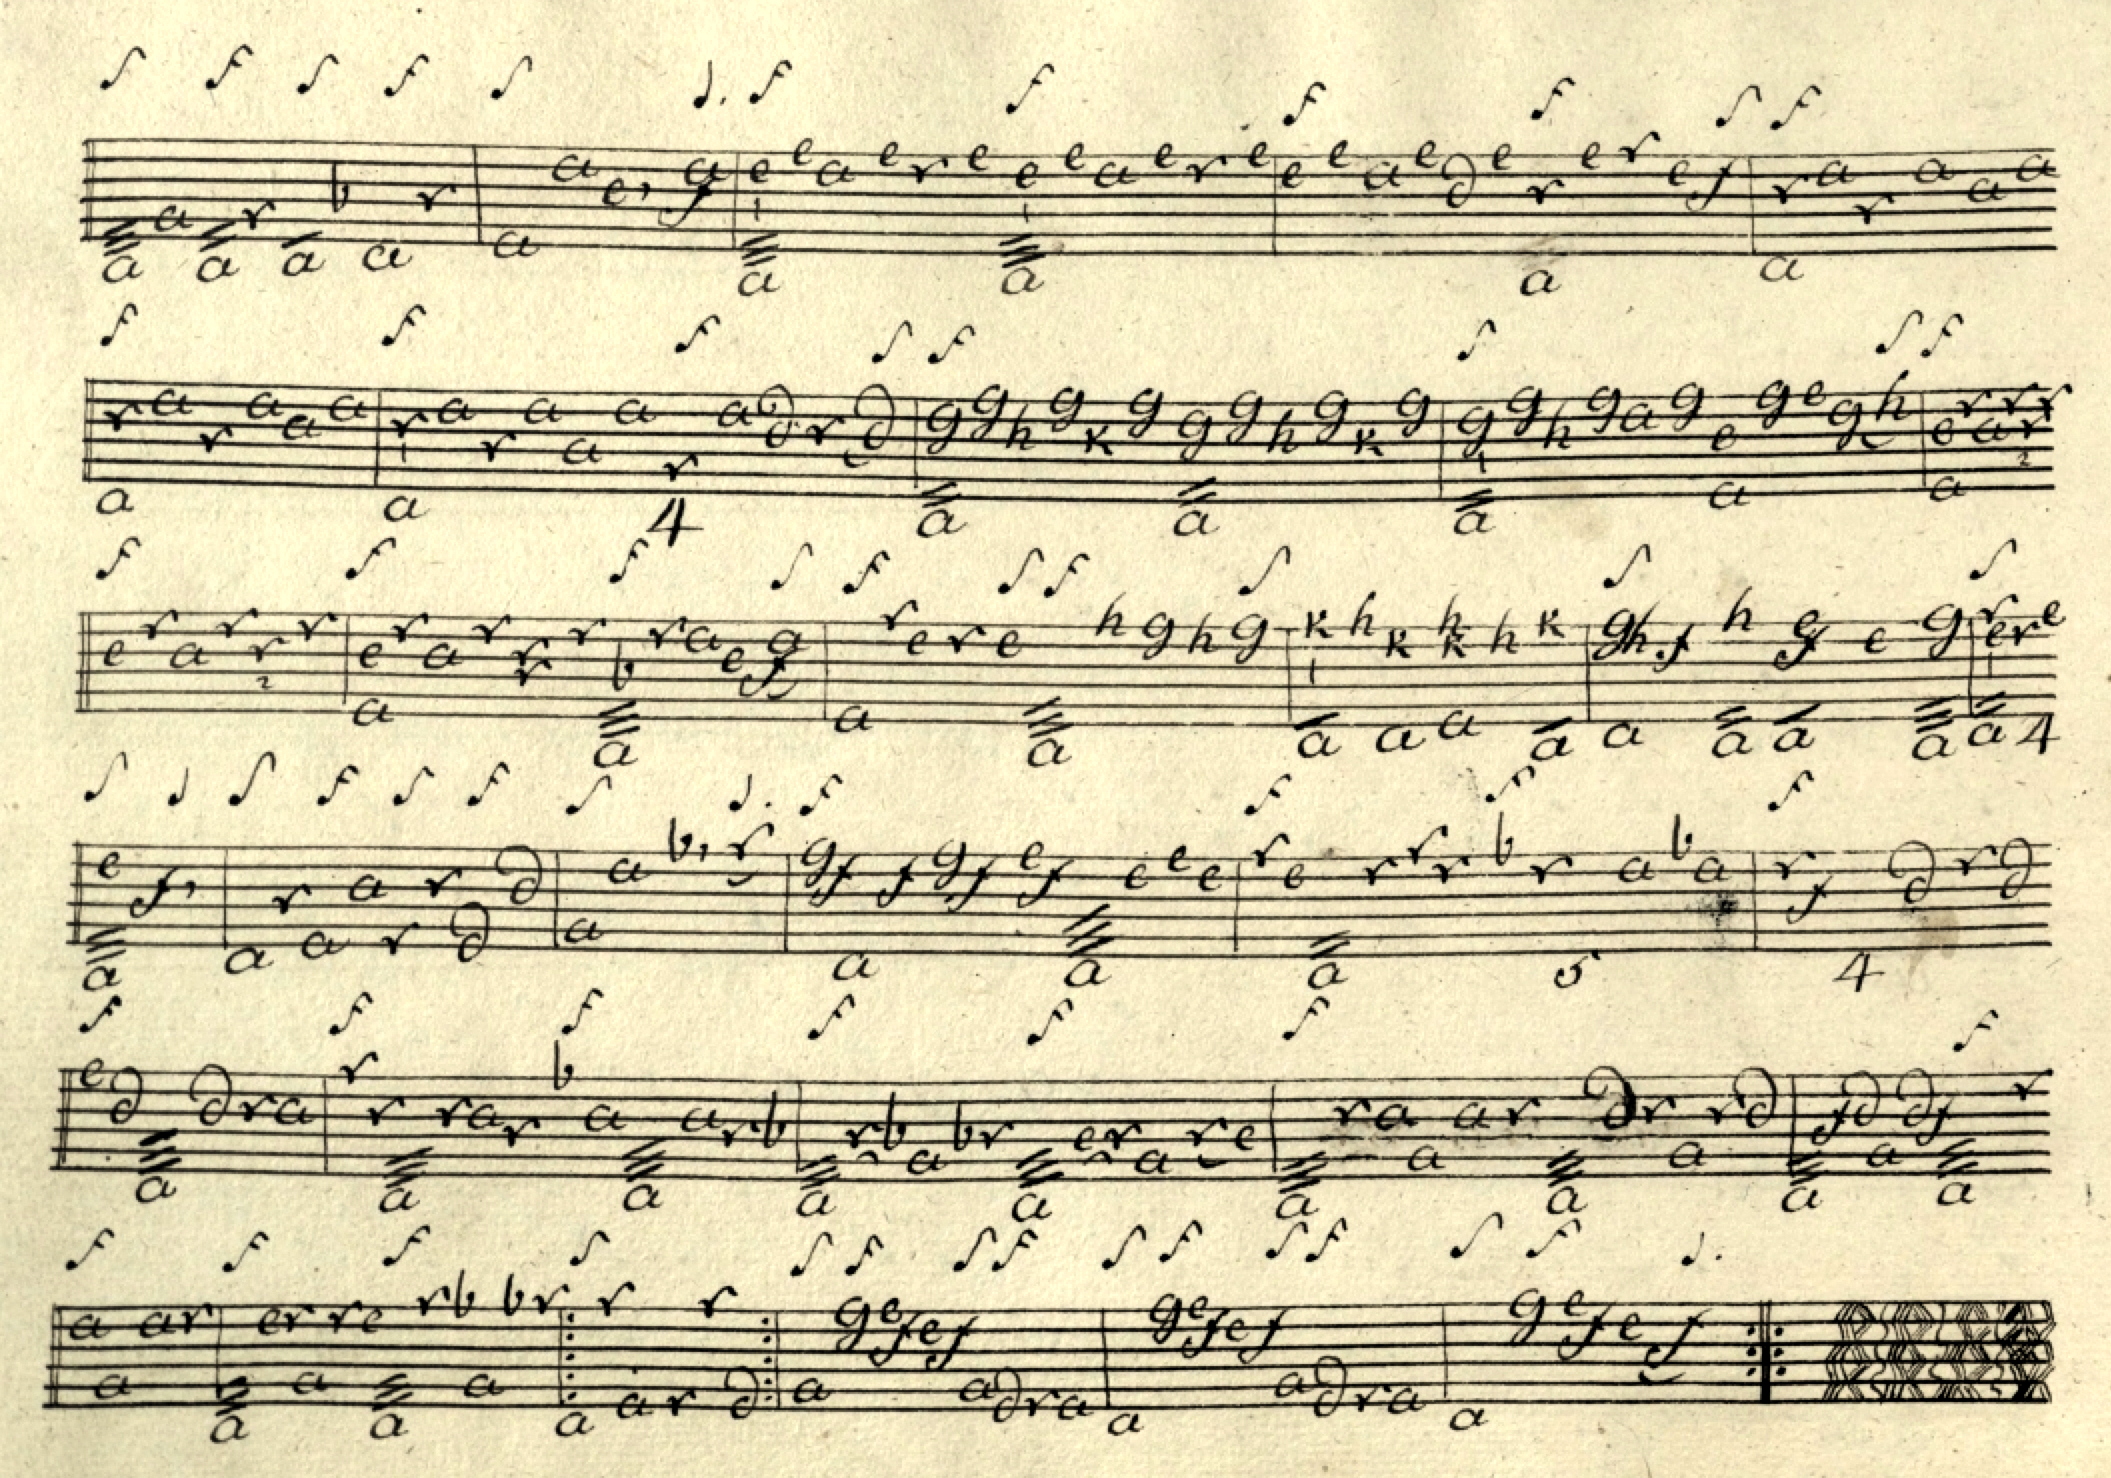 a r b r a a e, a f e e a e r e e e a e r e e e a e d e r e r e f r a r a a a
a a a a a a a a
r a r a a a r a r a a a r a d d r d g g h g k g g g h g k g g g h g a g e g e g h e r a r r r
a a 4 a a a a a
e r a r r r e r a r r r r b r a e a f r e r e h g h g k h k h k h k g h. f h e f e g r e r e
a a a a a a a a a a a a a 4
e f, r a r d a b, r g f f g f e f e e e r e r r r b r a b a r f d r d
a a a r d a a a a 5 4
e d d r a r r r a r b a a r b r b a b r e r a r e r a a a r d r a r d f d a d f r
a a a a a a a a a
a a r e r r e r b b r r r g e f e f g e f e f g e f e f
a a a a a a a r d a a d r a a a d r a a